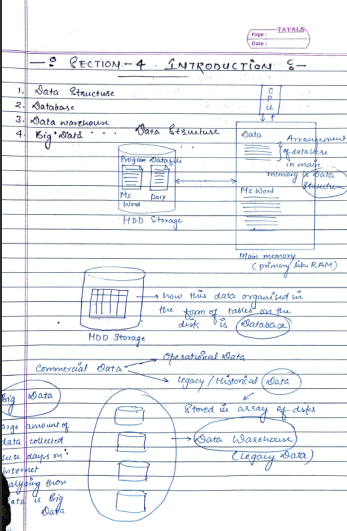 TAYALS
Page :
Date :
SECTION-4 INTRODUCTION
1. Data Structure
2. Database
3. Data warehouse
4. Big Data
Data Structure
CPU
Program Data file
Ms Word
HDD Storage
Data
Ms Word
Arrangement
of database
in main
memory is Data
Structure
Main memory
(primary like RAM)
HDD Storage
→ how this data organised in
the form of tables on the
disk is Database
Commercial Data
Operational Data
Legacy / Historical Data
Stored in array of disks
→ Data Warehouse
(Legacy Data)
Big Data
arge amount of
data collected
days on
internet
Data is Big
Data